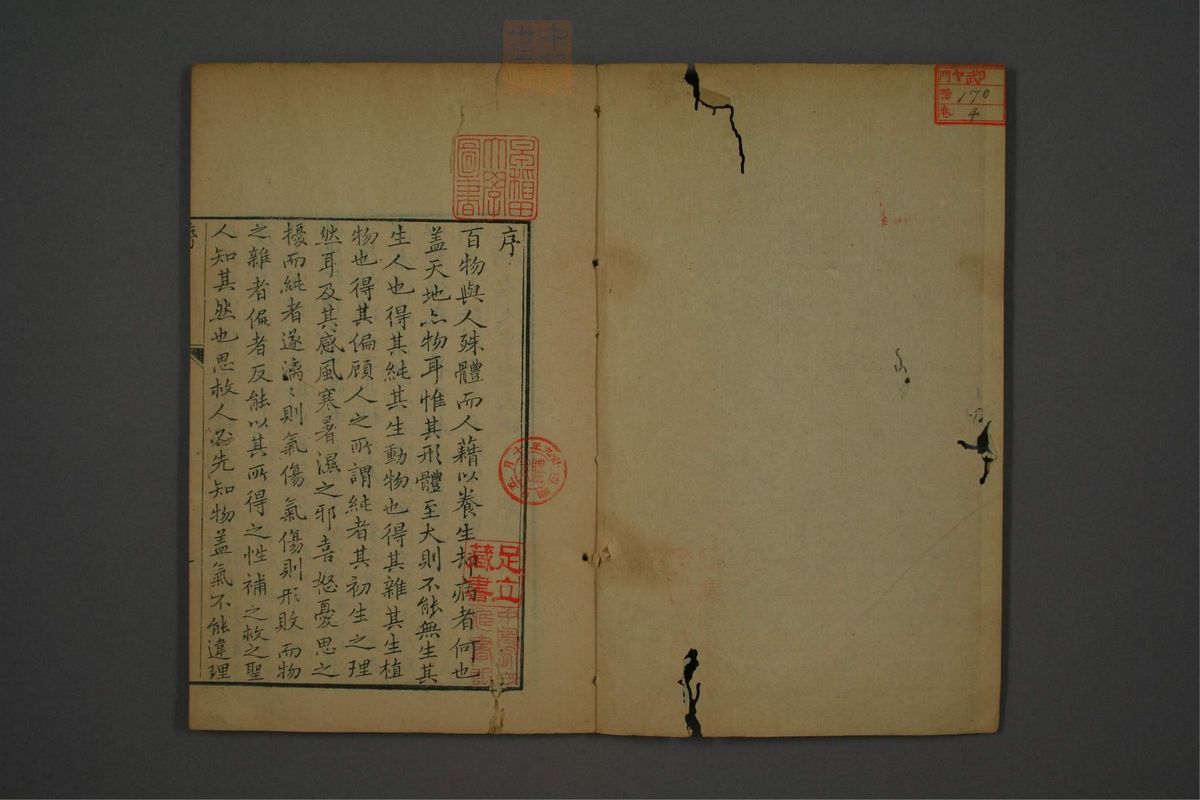 序
百物與人殊體而人藉以養生却病者何也
盖天地亦物耳惟其形體至大則不能無生其
生人也得其純其生動物也得其雜其生植
物也得其偏顧人之所謂純者其初生之理
然耳及其感風寒暑濕之邪喜怒憂思之
擾而純者遂漓〻則氣傷氣傷則形敗而物
之雜者偏者反能以其所得之性補之救之聖
人知其然也思救人必先知物盖氣不能違理
序
早稲田
大學
圖書
足立
藏書
170
4